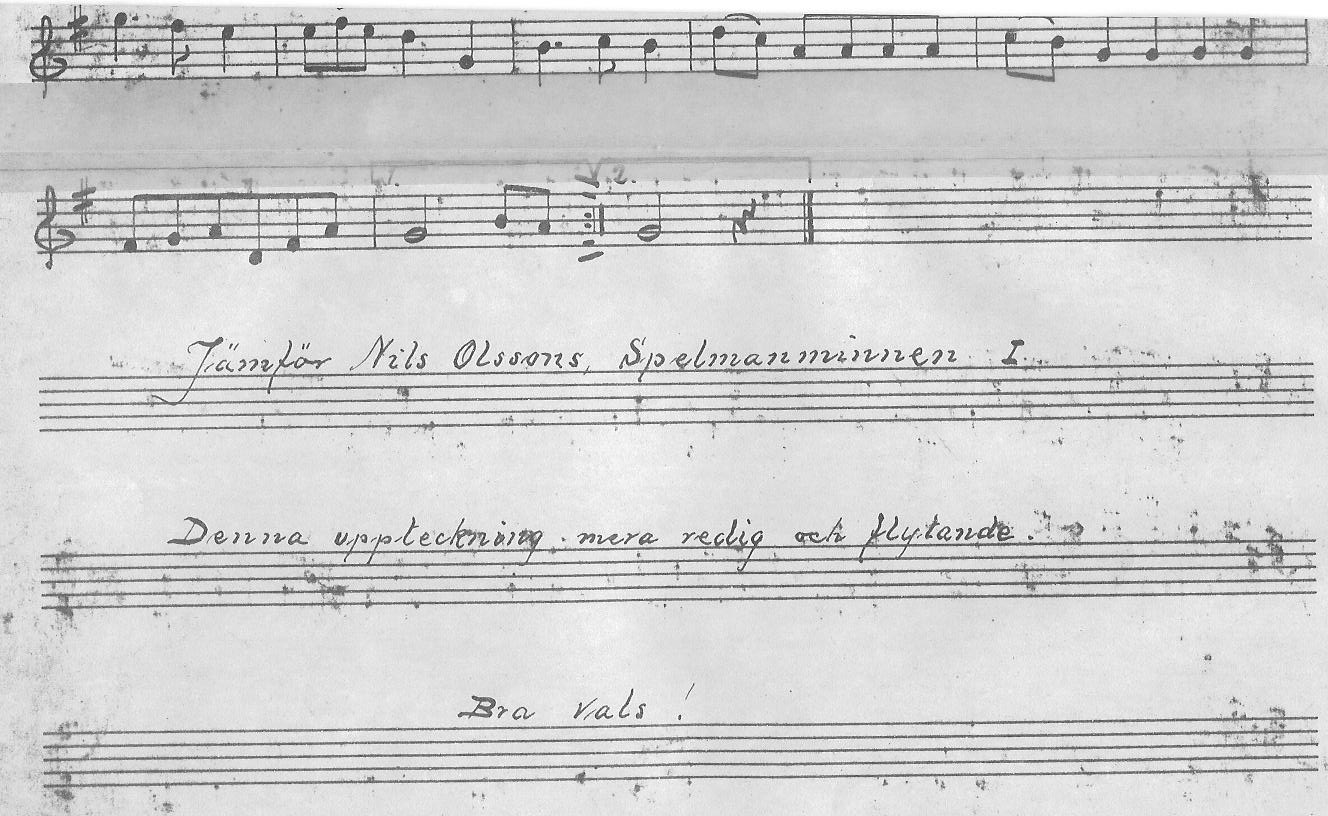 2.
Jämför Nils Olssons, Spelmanminnen I.
Denna uppteckning mera redig och flytande.
Bra Vals!